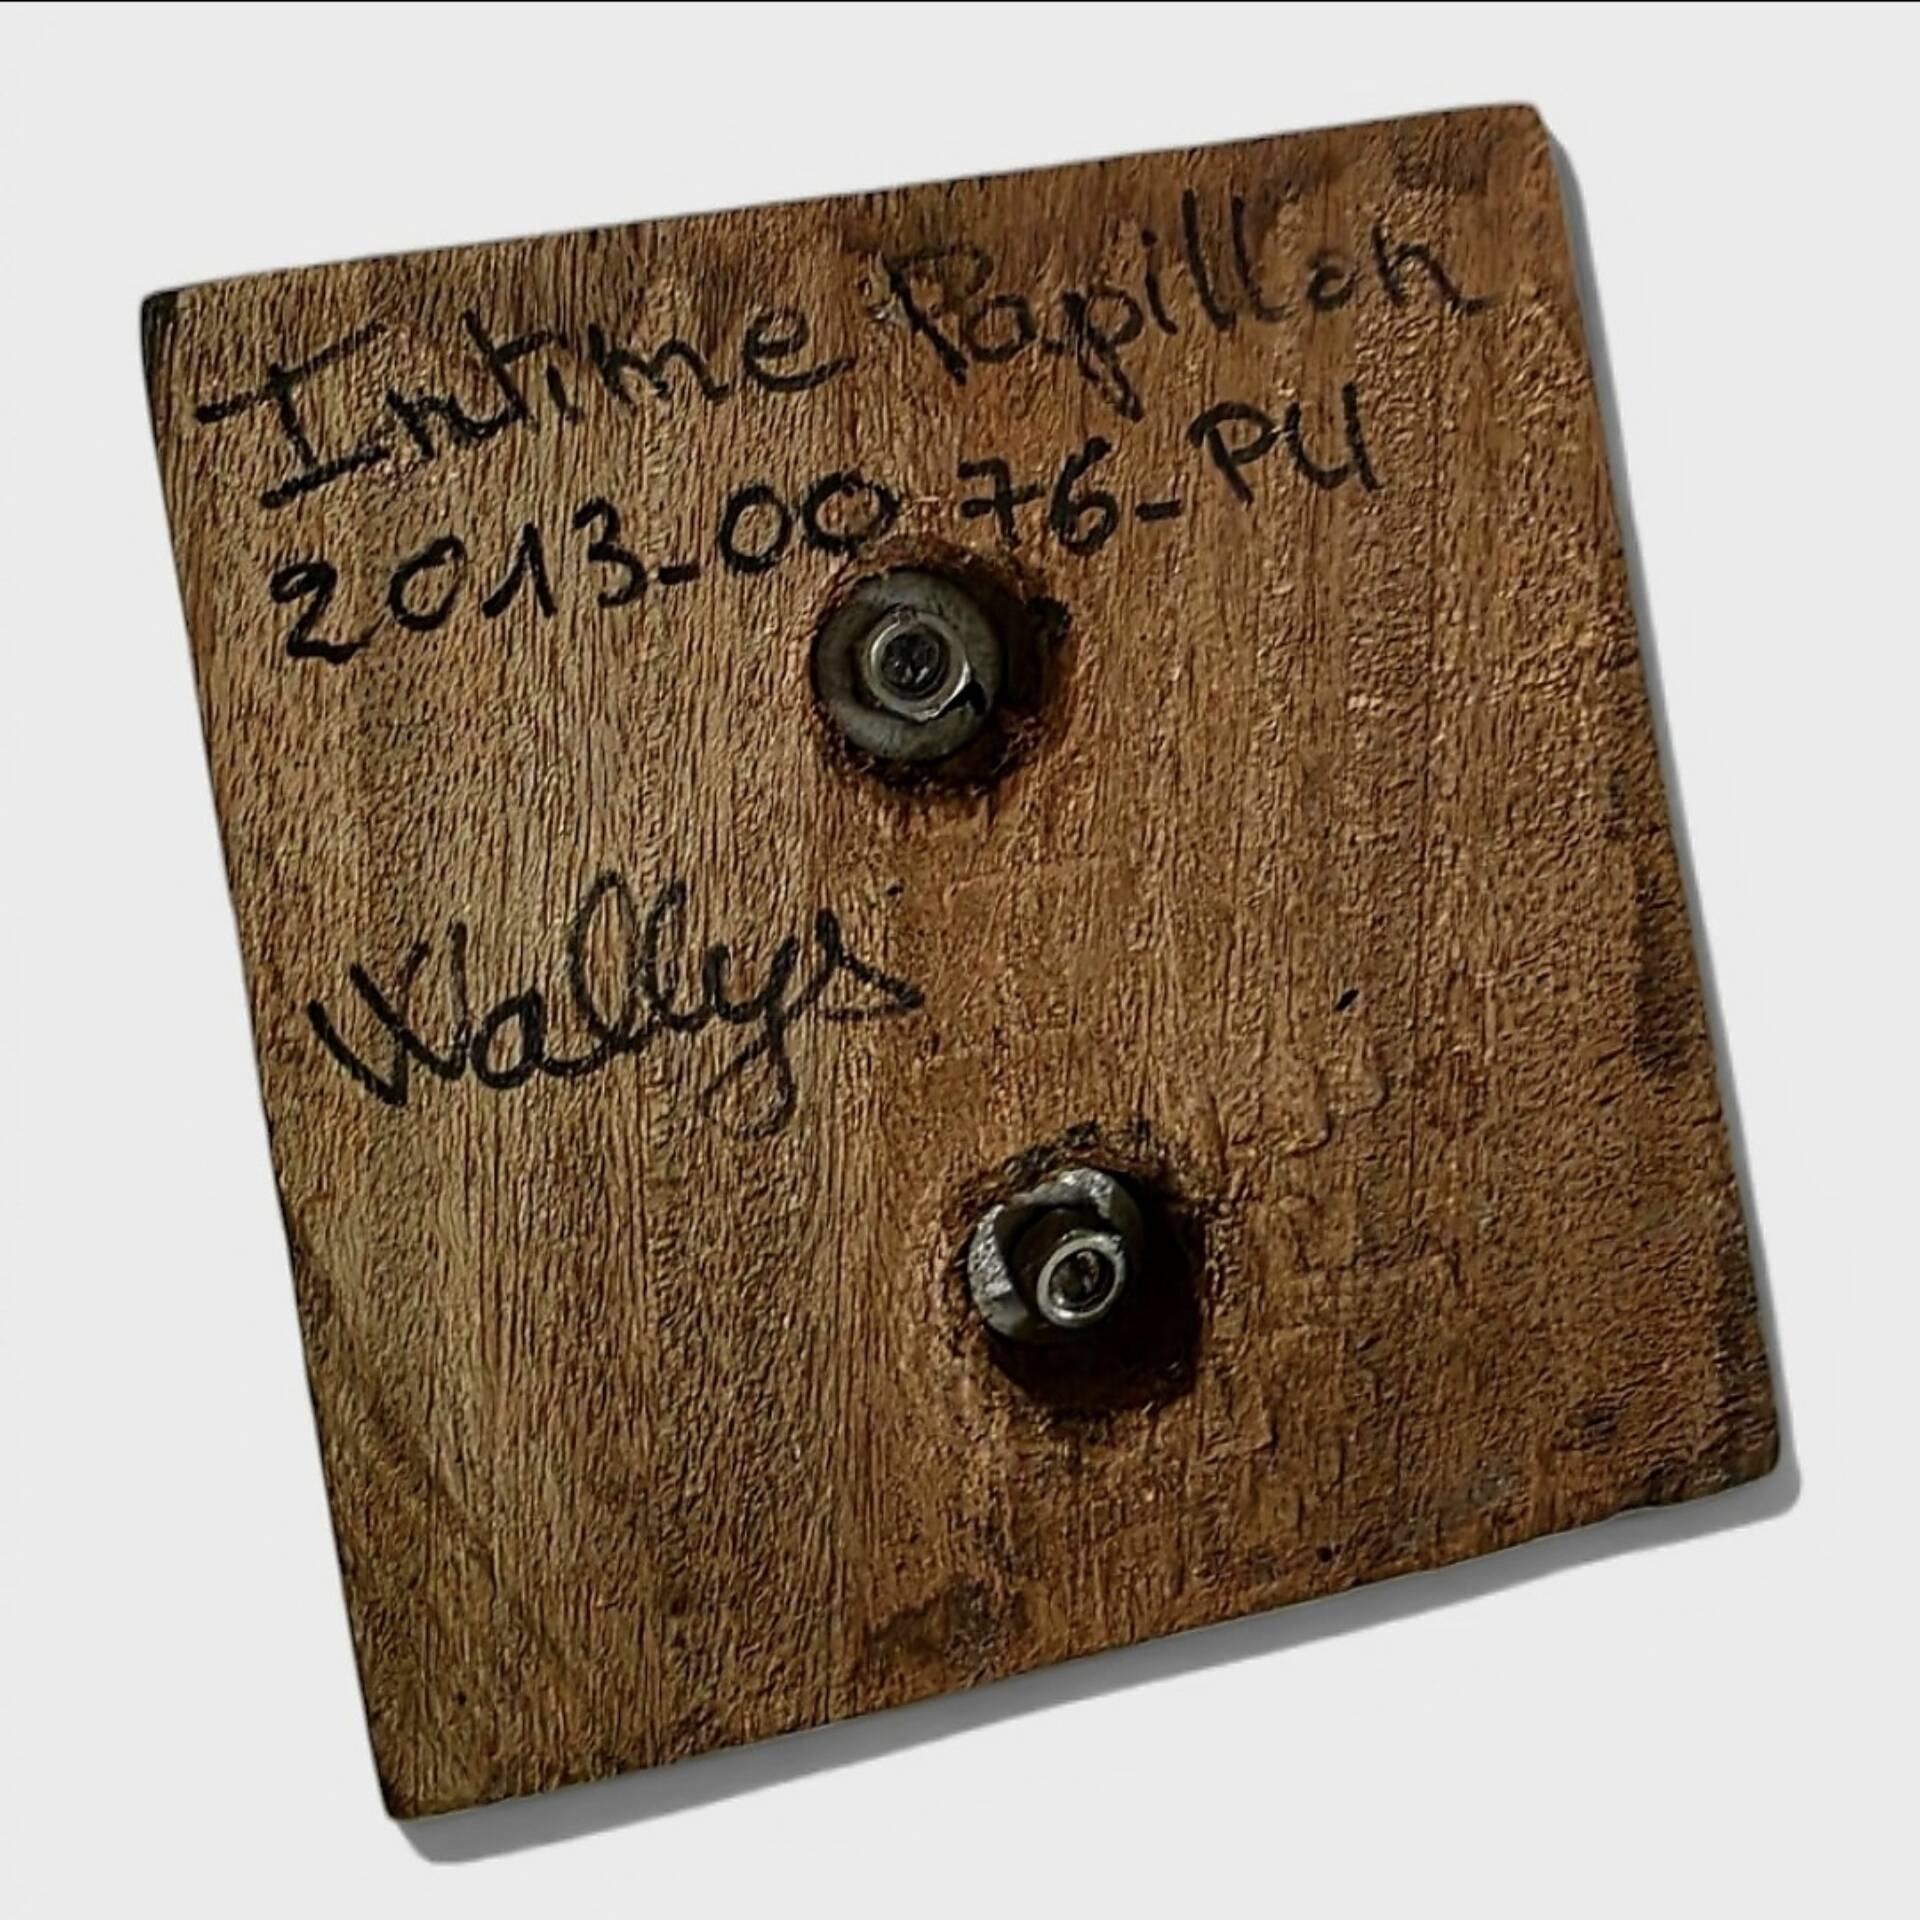 Intime Papillon
2013-0076-PU
Wallys